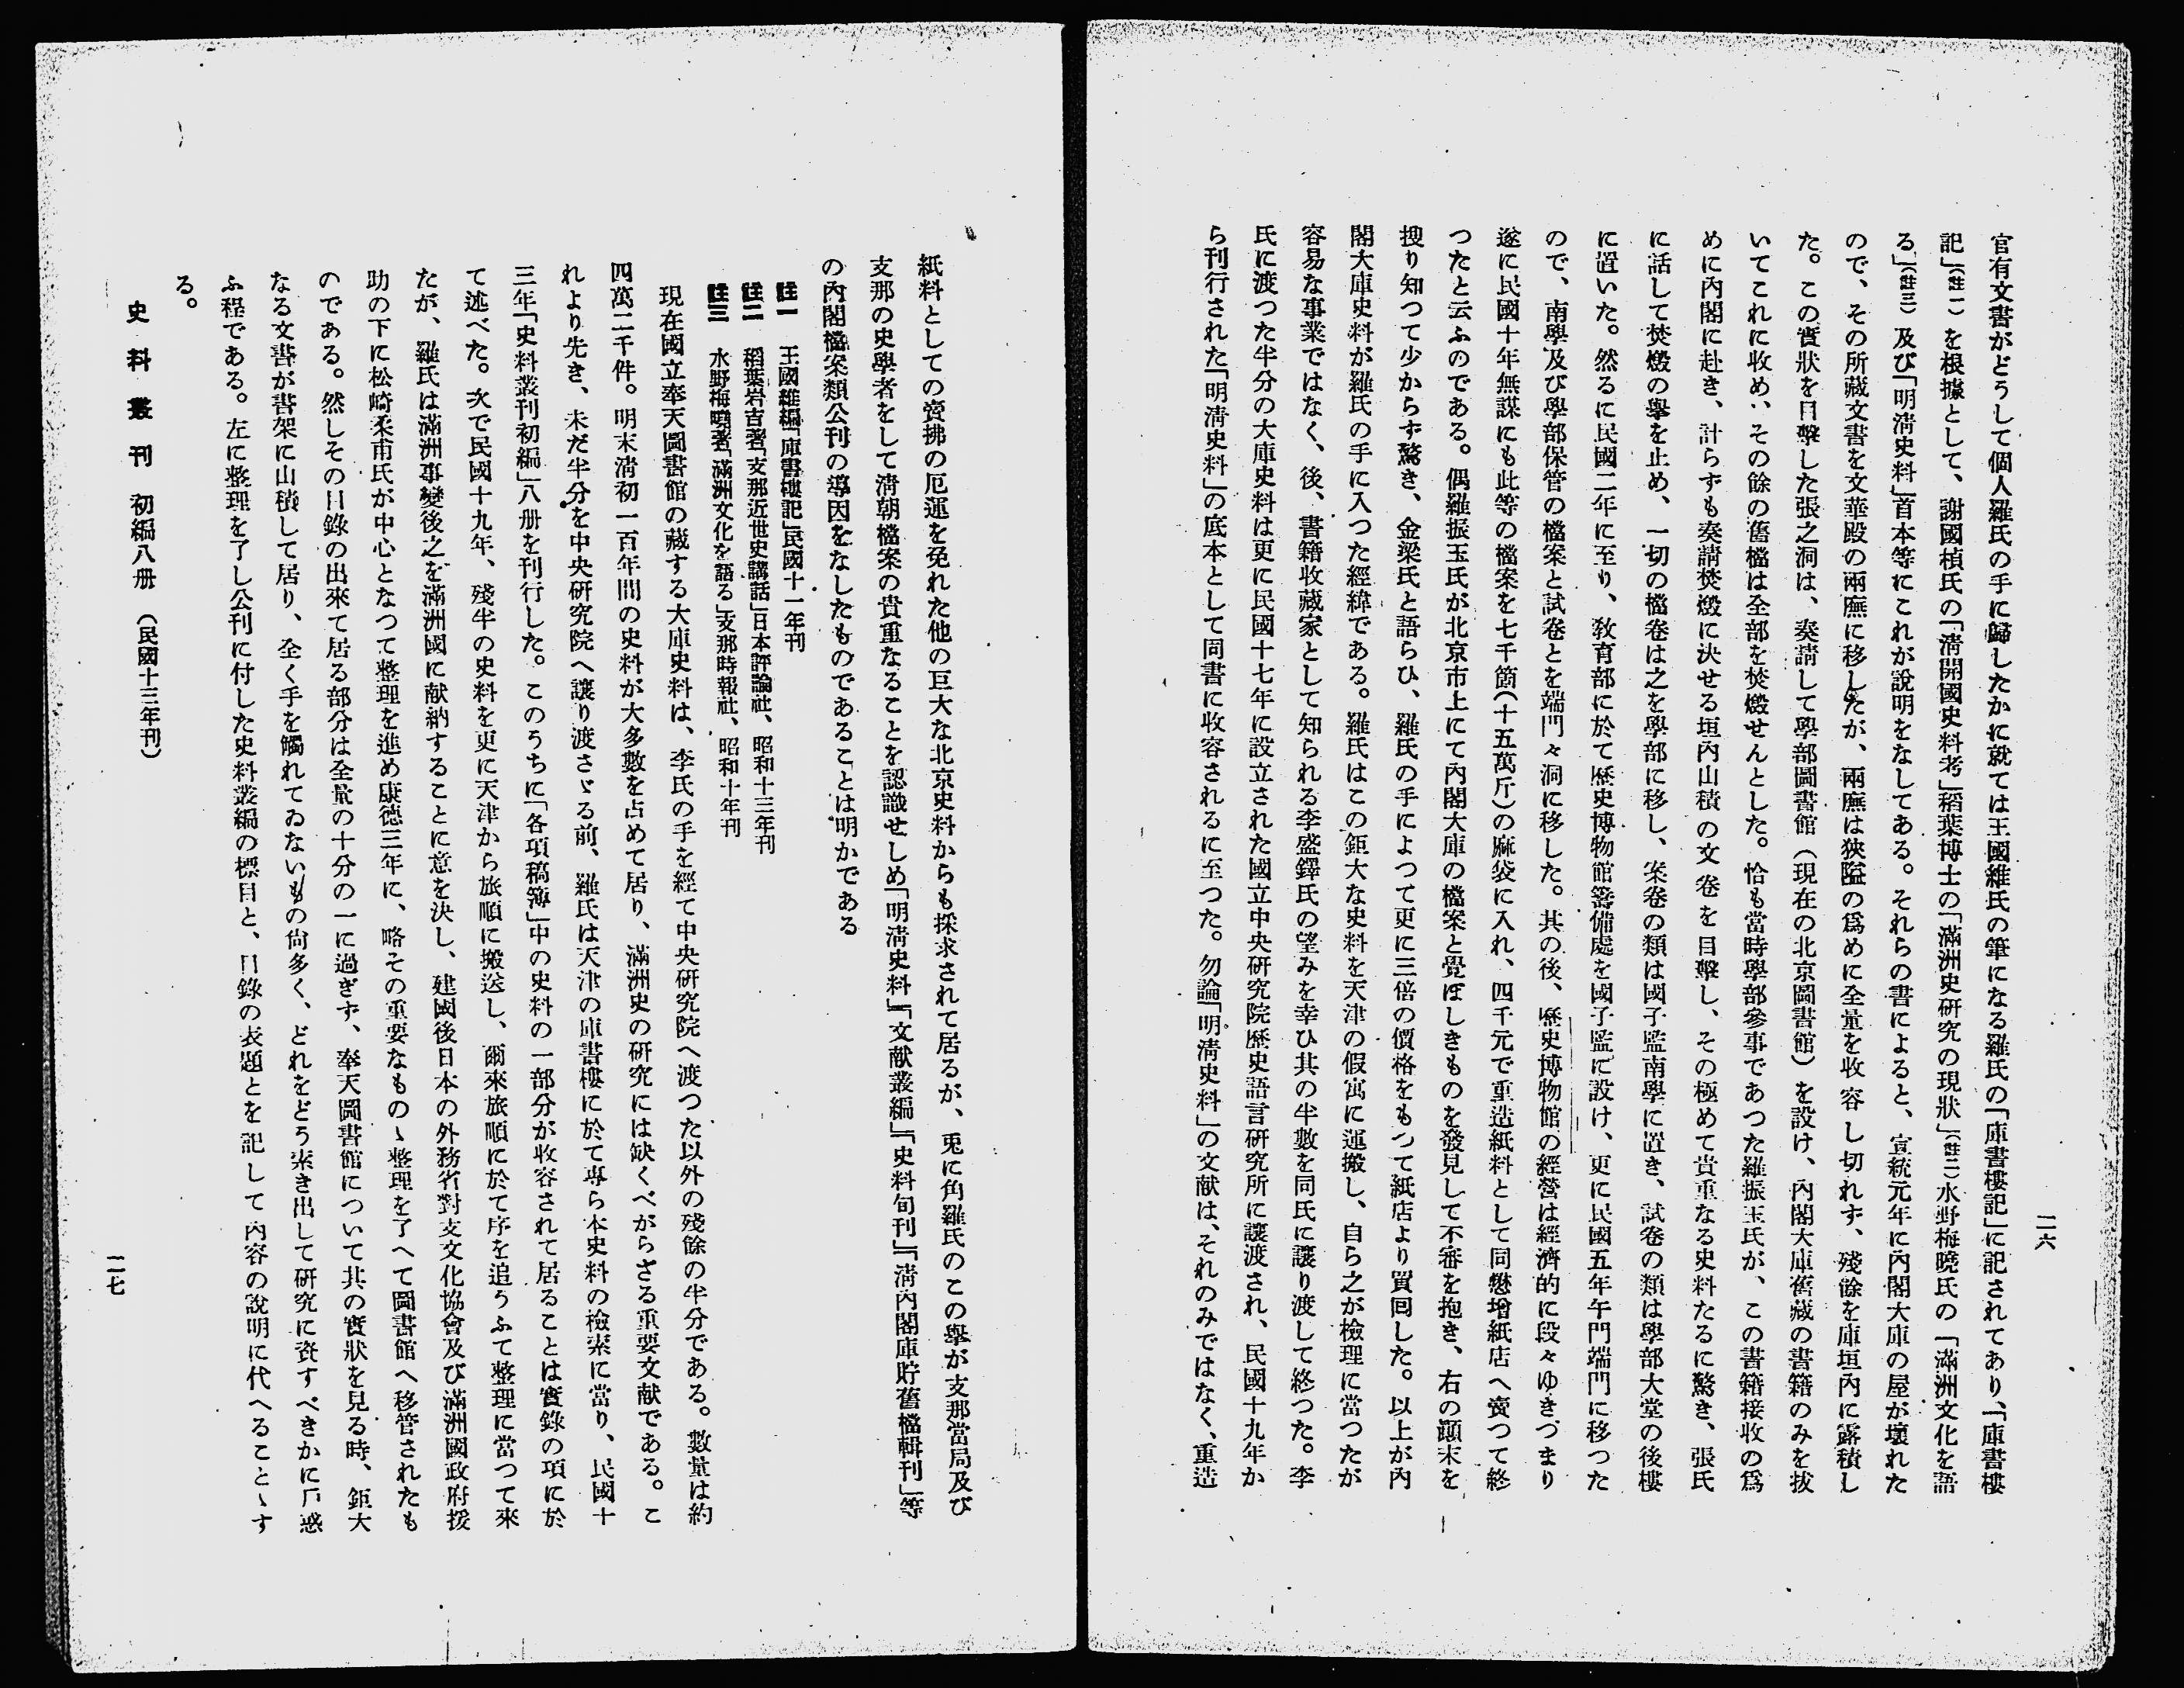 官有文書がどうして個人羅氏の手に歸したかに就ては王國維氏の筆になる羅氏の「庫書樓記」に記されてあり、「庫書樓
記」（註一）を根據として、謝國楨氏の「淸開國史料考」稻葉博士の「滿洲史研究の現狀」（註二）水野梅曉氏の「滿洲文化を語
る」（註三）及び「明淸史料」首本等にこれが說明をなしてある。それらの書によると、宣統元年に內閣大庫の屋が壞れた
ので、その所藏文書を文華殿の兩廡に移したが、兩廡は狹隘の爲めに全量を收容し切れず、殘餘を庫垣內に露積し
た。この實狀を目擊した張之洞は、奏請して學部圖書館（現在の北京圖書館）を設け、內閣大庫舊藏の書籍のみを拔
いてこれに收め、その餘の舊檔は全部を焚燬せんとした。恰も當時學部參事であつた羅振玉氏が、この書籍接收の爲
めに內閣に赴き、計らずも奏請焚燬に決せる垣內山積の文卷を目擊し、その極めて貴重なる史料たるに驚き、張氏
に話して焚燬の擧を止め、一切の檔卷は之を學部に移し、案卷の類は國子監南學に置き、試卷の類は學部大堂の後樓
に置いた。然るに民國二年に至り、敎育部に於て歷史博物館籌備處を國子監に設け、更に民國五年午門端門に移つた
ので、南學及び學部保管の檔案と試卷とを端門々洞に移した。其の後、歷史博物館の經營は經濟的に段々ゆきづまり
遂に民國十年無謀にも此等の檔案を七千箇（十五萬斤）の麻袋に入れ、四千元で重造紙料として同懋增紙店へ賣つて終
つたと云ふのである。偶羅振玉氏が北京市上にて內閣大庫の檔案と覺ぼしきものを發見して不審を抱き、右の顚末を
搜り知つて少からず驚き、金梁氏と語らひ、羅氏の手によつて更に三倍の價格をもつて紙店より買囘した。以上が內
閣大庫史料が羅氏の手に入つた經緯である。羅氏はこの鉅大な史料を天津の假寓に運搬し、自ら之が檢理に當つたが
容易な事業ではなく、後、書籍收藏家として知られる李盛鐸氏の望みを幸ひ其の半數を同氏に讓り渡して終つた。李
氏に渡つた半分の大庫史料は更に民國十七年に設立された國立中央硏究院歷史語言硏究所に讓渡され、民國十九年か
ら刊行された「明淸史料」の底本として同書に收容されるに至つた。勿論「明淸史料」の文献は、それのみではなく、重造
二六
紙料としての賣拂の厄運を免れた他の巨大な北京史料からも採求されて居るが、兎に角羅氏のこの擧が支那當局及び
支那の史學者をして淸朝檔案の貴重なることを認識せしめ「明淸史料」「文献叢編」「史料旬刊」「淸內閣庫貯舊檔輯刊」等
の內閣檔案類公刊の導因をなしたものであることは明かである
註一　王國維編「庫書樓記」民國十一年刊
註二　稻葉岩吉著「支那近世史講話」日本評論社、昭和十三年刊
註三　水野梅曉著「滿洲文化を語る」支那時報社、昭和十年刊
現在國立奉天圖書館の藏する大庫史料は、李氏の手を經て中央硏究院へ渡つた以外の殘餘の半分である。數量は約
四萬二千件。明末淸初一百年間の史料が大多數を占めて居り、滿洲史の硏究には缺くべからざる重要文献である。こ
れより先き、未だ半分を中央硏究院へ讓り渡さゞる前、羅氏は天津の庫書樓に於て專ら本史料の檢索に當り、民國十
三年「史料叢刊初編」八册を刊行した。このうちに「各項稿簿」中の史料の一部分が收容されて居ることは實錄の項に於
て述べた。次で民國十九年、殘半の史料を更に天津から旅順に搬送し、爾來旅順に於て序を追うふて整理に當つて來
たが、羅氏は滿洲事變後之を滿洲國に献納することに意を決し、建國後日本の外務省對支文化協會及び滿洲國政府援
助の下に松崎柔甫氏が中心となつて整理を進め康德三年に、略その重要なものゝ整理を了へて圖書館へ移管されたも
のである。然しその目錄の出來て居る部分は全量の十分の一に過ぎず、奉天圖書館について其の實狀を見る時、鉅大
なる文書が書架に山積して居り、全く手を觸れてゐないもの尙多く、どれをどう索き出して硏究に資すべきかに戶惑
ふ程である。左に整理を了し公刊に付した史料叢編の標目と、目錄の表題とを記して內容の說明に代へることゝす
る。
史料叢刊　初編八册　（民國十三年刊）
二七